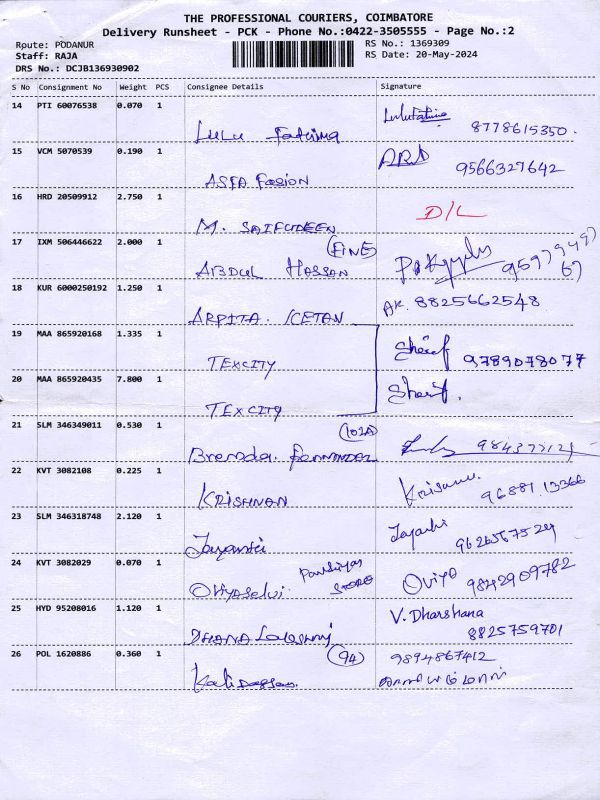 THE PROFESSIONAL COURIERS, COIMBATORE
Delivery Runsheet - PCK - Phone No.:0422-3505555 - Page No.:2
Route: PODANUR
Staff: RAJA
DRS No.: DCJB136930902
RS No.: 1369309
RS Date: 20-May-2024
S No Consignment No Weight PCS Consignee Details Signature
14 PTI 60076538 0.070 1
LULU Fatima 8778615350.
15 VCM 5070539 0.190 1
ASFA Fasion 9566327642
16 HRD 20509912 2.750 1
M. SAIFUDEEN D/L
17 IXM 506446622 2.000 1
ABDUL HASSAN (FINE) 9597949767
18 KUR 6000250192 1.250 1
ARPITA. KETAN AK. 8825662548
19 MAA 865920168 1.335 1
TEXCITY Sherif 9789078077
20 MAA 865920435 7.800 1
TEXCITY Sherif.
21 SLM 346349011 0.530 1
Brenda. (102A)
22 KVT 3082108 0.225 1
KRISHNAN 96881 13366
23 SLM 346318748 2.120 1
Jayanthi 9626567524
24 KVT 3082029 0.070 1
Oviyaselvi Pandiyan Store Oviya 9842909782
25 HYD 95208016 1.120 1
DHANA Lakshmi V. Dharshana
8825759701
26 POL 1620886 0.360 1
Kalidassan. (94) 9894867412